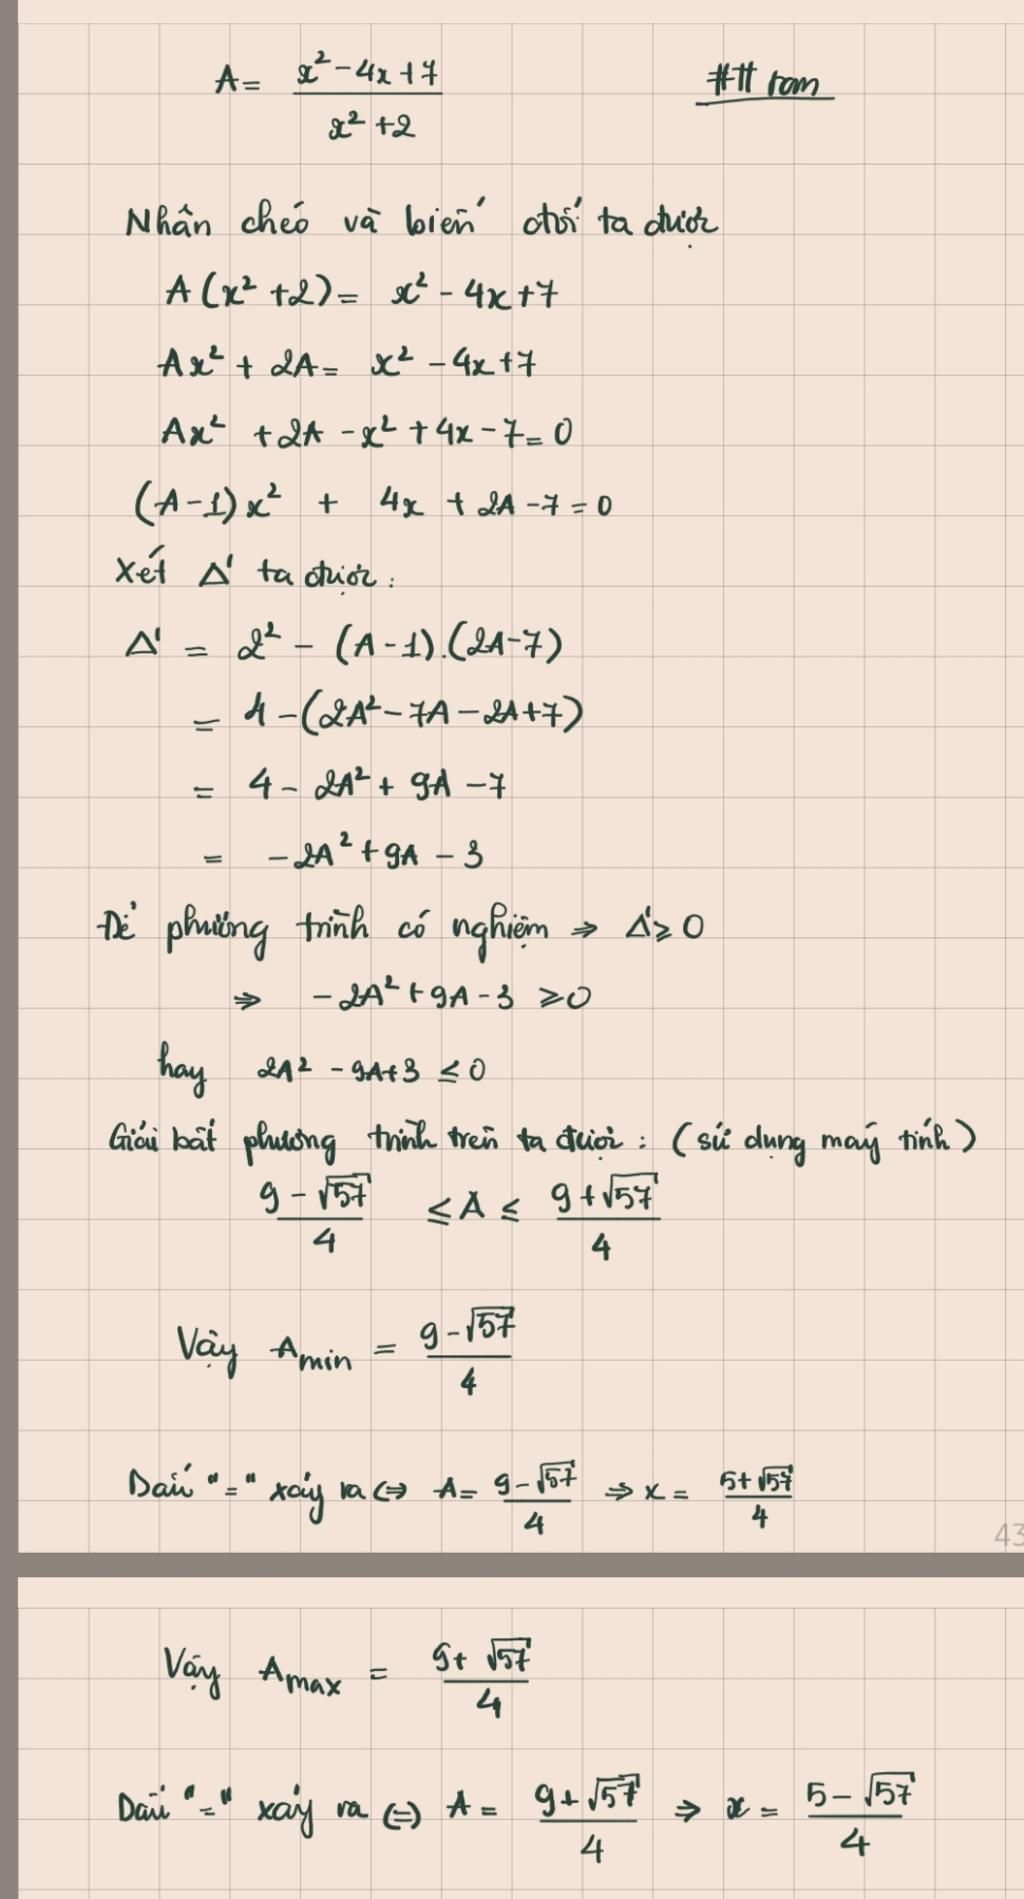 A = \frac{x² - 4x + 7}{x² + 2}
##ram
Nhân chéo và biến đổi ta được
A(x² + 2) = x² - 4x + 7
Ax² + 2A = x² - 4x + 7
Ax² + 2A - x² + 4x - 7 = 0
(A - 1)x² + 4x + 2A - 7 = 0
Xét Δ' ta được:
Δ' = 2² - (A - 1).(2A - 7)
= 4 - (2A² - 7A - 2A + 7)
= 4 - 2A² + 9A - 7
= -2A² + 9A - 3
Để phương trình có nghiệm ⇒ Δ' ≥ 0
⇒ -2A² + 9A - 3 ≥ 0
hay 2A² - 9A + 3 ≤ 0
Giải bất phương trình trên ta được: (sử dụng máy tính)
\frac{9 - √57}{4} ≤ A ≤ \frac{9 + √57}{4}
Vậy Amin = \frac{9 - √57}{4}
Dấu "=" xảy ra ⇔ A = \frac{9 - √57}{4} ⇒ x = \frac{5 + √57}{4}
43
Vậy Amax = \frac{9 + √57}{4}
Dấu "=" xảy ra ⇔ A = \frac{9 + √57}{4} ⇒ x = \frac{5 - √57}{4}